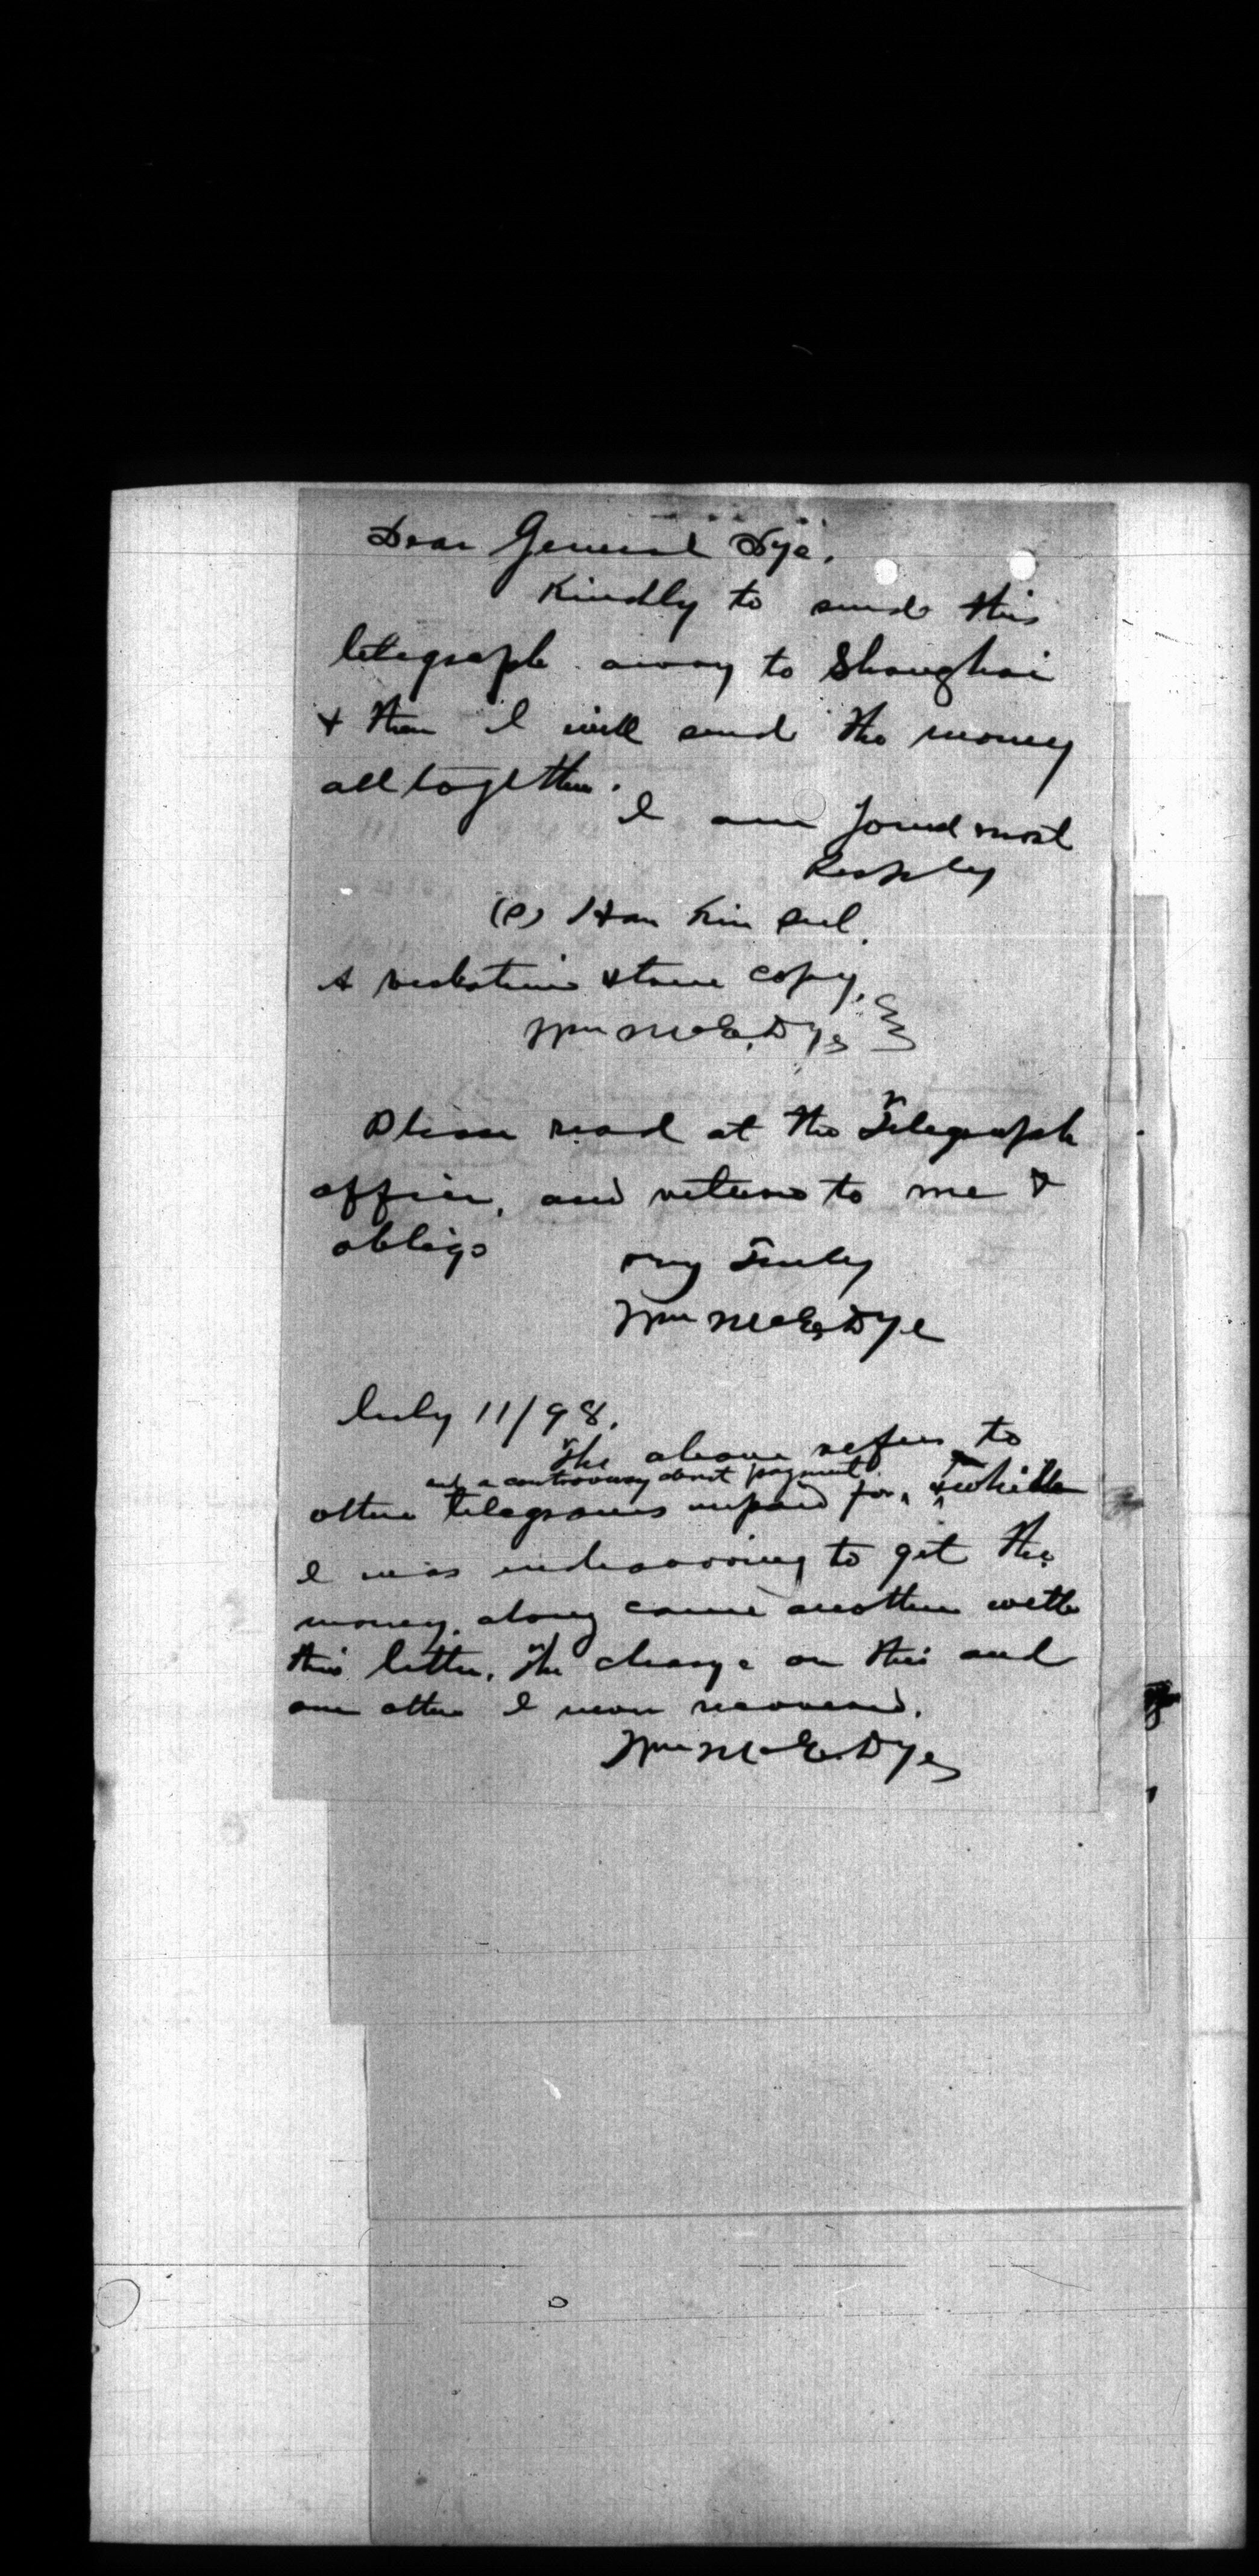 Dear General Dye,
Kindly to send this
telegraph away to Shanghai
& then I will send the money
all together.
I am found most
Resply
(s) Han Kin Sul.
A verbatim & true copy,
Wm McE. Dye
Please read at the Telegraph
office, and return to me &
oblige
Very Truly
Wm McE. Dye
July 11/98.
The above refers to
and a controversy about payment.
other telegrams unpaid for, & while
I was endeavoring to get the
money, along came another with
this letter. The charge on this and
one other I never recovered.
Wm McE. Dye